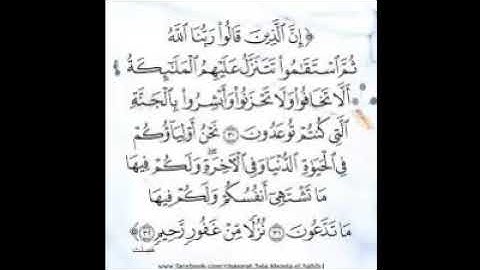 ﴿إِنَّ ٱلَّذِينَ قَالُوا۟ رَبُّنَا ٱللَّهُ
ثُمَّ ٱسْتَقَٰمُوا۟ تَتَنَزَّلُ عَلَيْهِمُ ٱلْمَلَٰٓئِكَةُ
أَلَّا تَخَافُوا۟ وَلَا تَحْزَنُوا۟ وَأَبْشِرُوا۟ بِٱلْجَنَّةِ
ٱلَّتِى كُنتُمْ تُوعَدُونَ ۝٣٠ نَحْنُ أَوْلِيَآؤُكُمْ
فِى ٱلْحَيَوٰةِ ٱلدُّنْيَا وَفِى ٱلْءَاخِرَةِ ۖ وَلَكُمْ فِيهَا
مَا تَشْتَهِىٓ أَنفُسُكُمْ وَلَكُمْ فِيهَا
مَا تَدَّعُونَ ۝٣١ نُزُلًا مِّنْ غَفُورٍ رَّحِيمٍ ۝٣٢﴾
فصلت